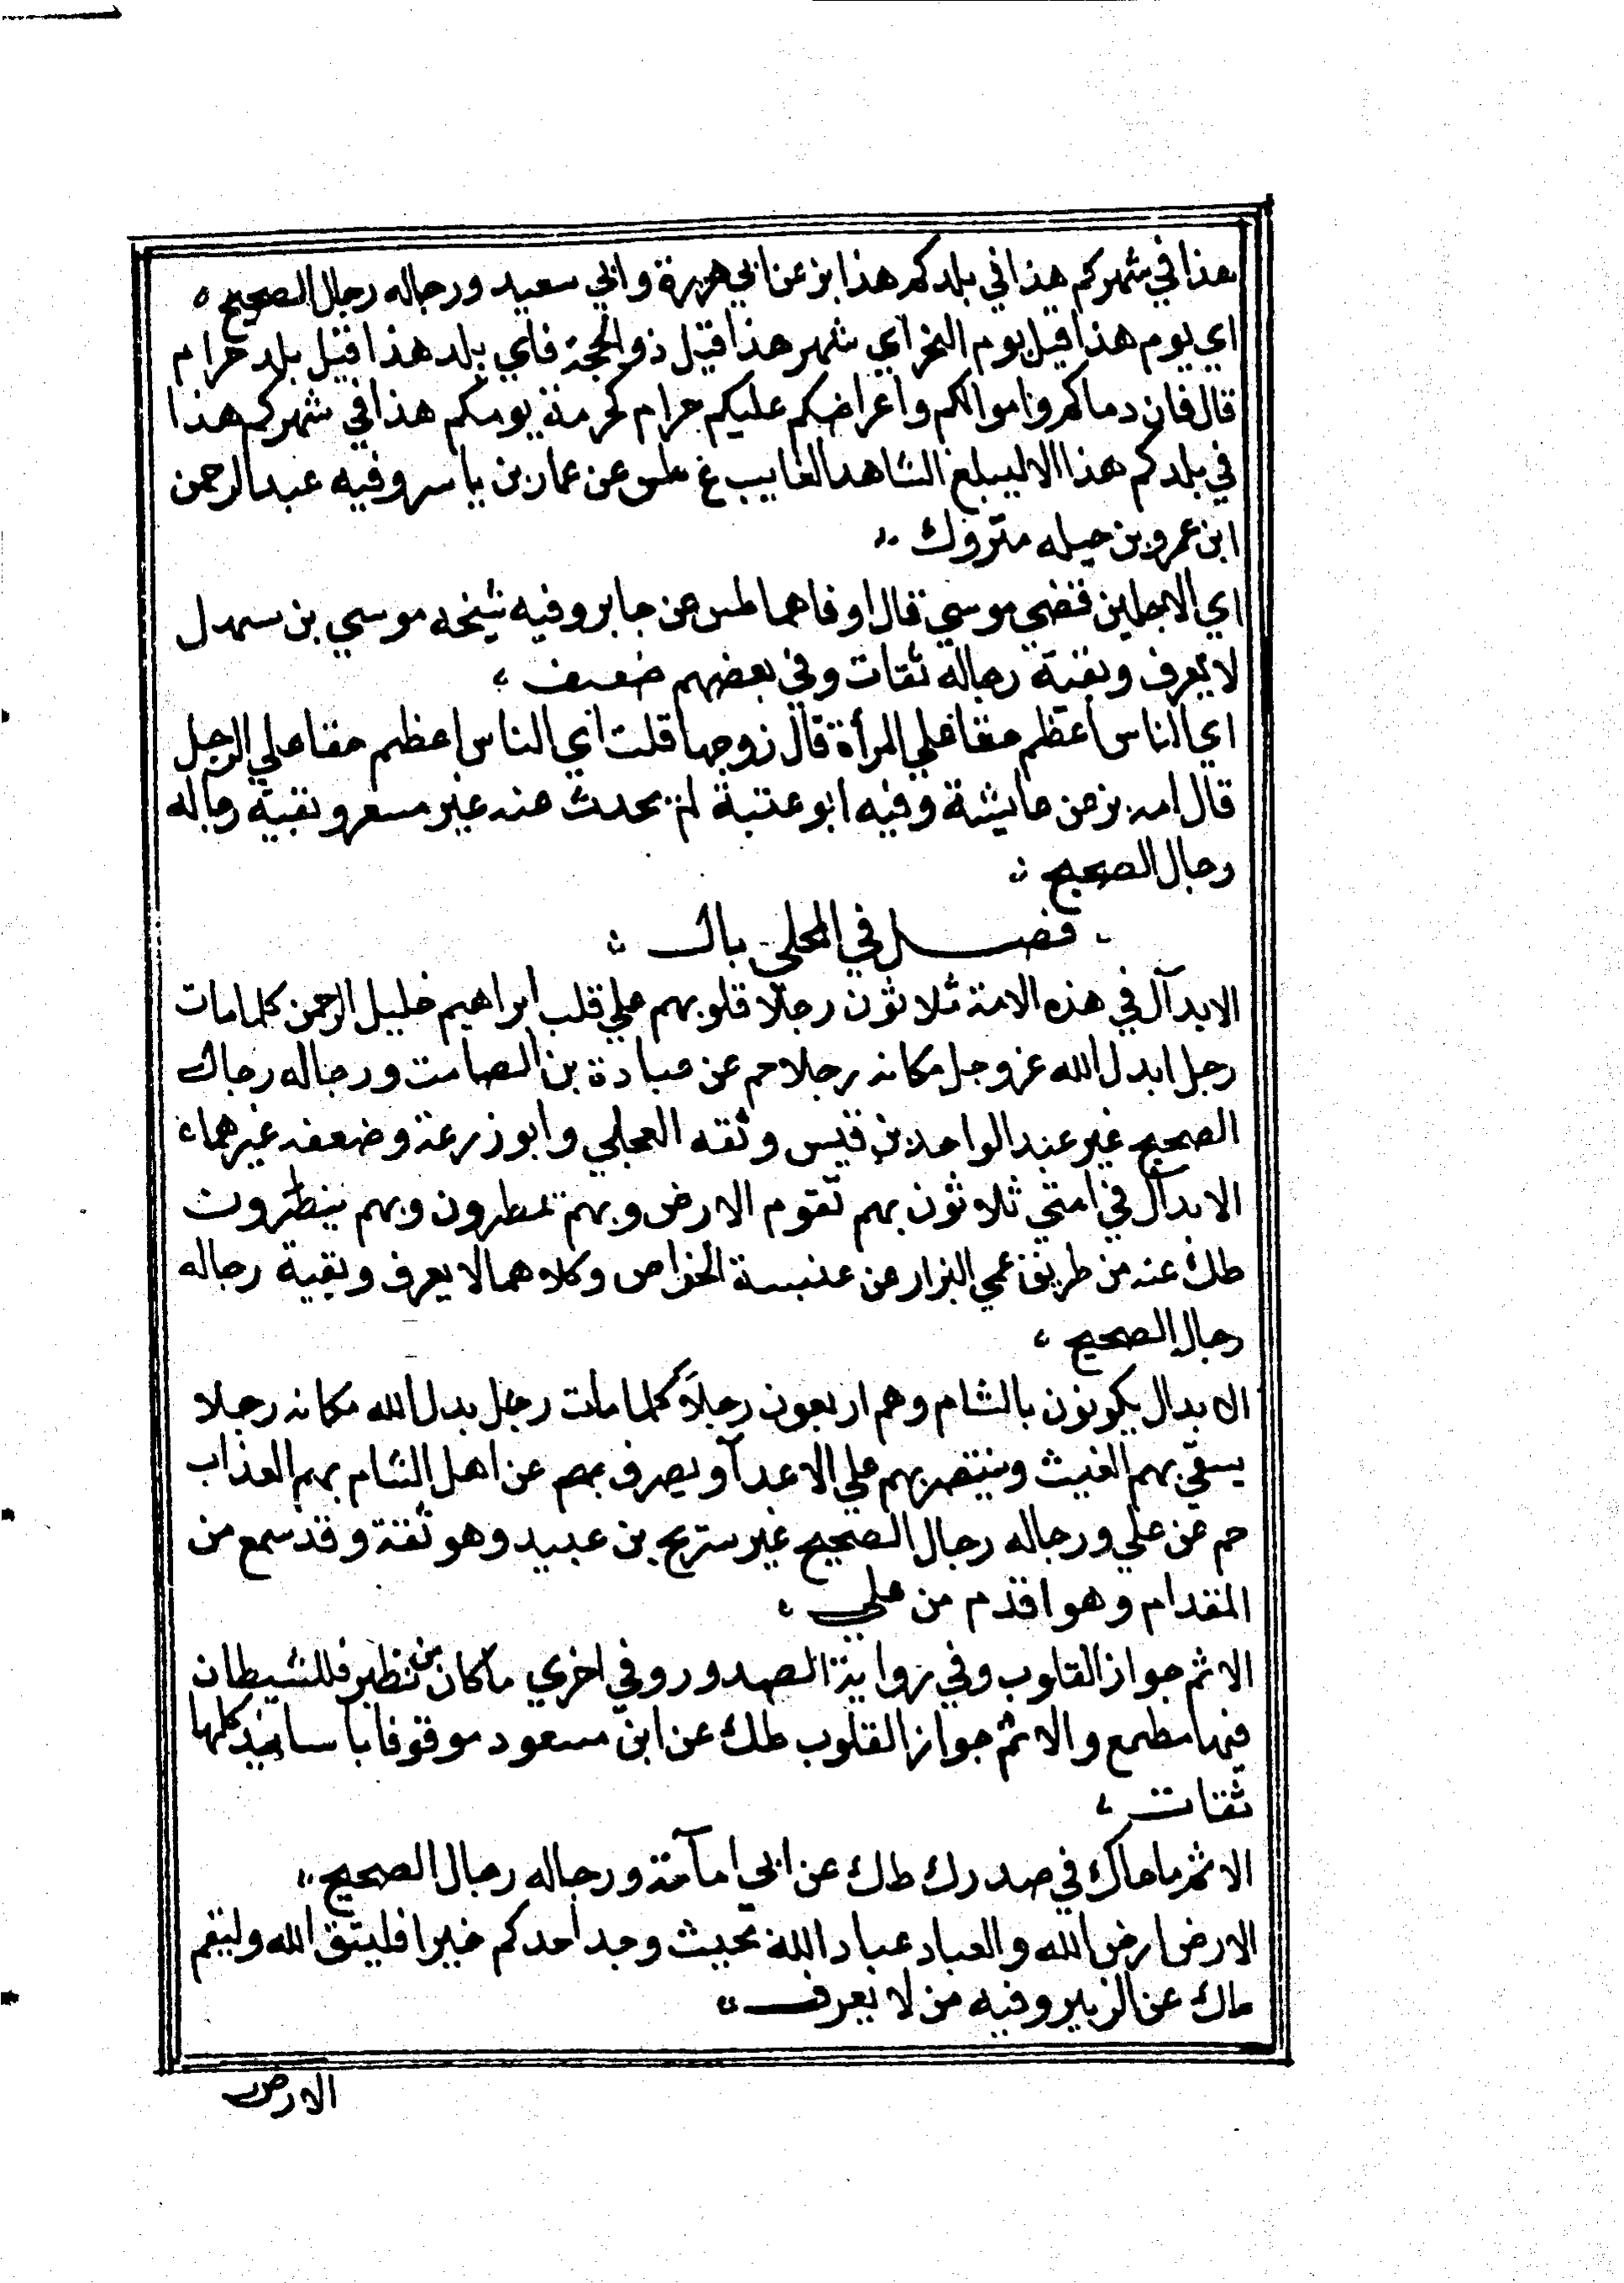 هذا في شهركم هذا في بلدكم هذا بز عن ابي هريرة وابي سعيد ورجاله رجال الصحيح
اي يوم هذا قيل يوم النحر اي شهر هذا قيل ذو الحجة فاي بلد هذا قيل بلد حرام
قال فان دماكم واموالكم واعراضكم عليكم حرام كحرمة يومكم هذا في شهركم هذا
في بلدكم هذا الا ليبلغ الشاهد الغايب غ طس عن عمار بن ياسر وفيه عبد الرحمن
ابن عمرو بن جبله متروك
اي الاجلين قضي موسي قال اوفاهما طس عن جابر وفيه شيخه موسي بن سهل
لا يعرف وبقية رجاله ثقات وفي بعضهم ضعف
اي الناس اعظم حقا علي المرأة قال زوجها قلت اي الناس اعظم حقا علي الرجل
قال امه بز عن عايشة وفيه ابو عتبة لم يحدث عنه غير مسعر وبقية رجاله
رجال الصحيح
فصل في المحلي بال
الابدآل في هذه الامة ثلاثون رجلا قلوبهم علي قلب ابراهيم خليل الرحمن كلمامات
رجل ابدل الله عز وجل مكانه رجلا حم عن عبادة بن الصامت ورجاله رجال
الصحيح غير عبد الواحد بن قيس وثقه العجلي وابو زرعة وضعفه غيرهما
الابدآل في امتي ثلاثون بهم تقوم الارض وبهم تمطرون وبهم ينطرون
طك عنه من طريق عمي البزار عن عنبسة الخواص وكلاهما لا يعرف وبقية رجاله
رجال الصحيح
الابدال يكونون بالشام وهم اربعون رجلاً كلمامات رجل بدل الله مكانه رجلا
يسقي بهم الغيث وينتصر بهم علي الاعدآ ويصرف بهم عن اهل الشام بهم العذاب
حم عن علي ورجاله رجال الصحيح غير شريح بن عبيد وهو ثقة وقد سمع من
المقدام وهو اقدم من علي
الاثم جواز القلوب وفي رواية الصدور وفي اخري ماكان من نظير فللشيطان
فيها مطمع والاثم جواز القلوب طك عن ابن مسعود موقوفا باسانيد كلها
ثقات
الاثم ماحاك في صدرك طك عن ابي امآمة ورجاله رجال الصحيح
الارض ارض الله والعباد عباد الله بحيث وجد احدكم خيرا فليتق الله وليقم
طك عن الزبير وفيه من لا يعرف
الارض